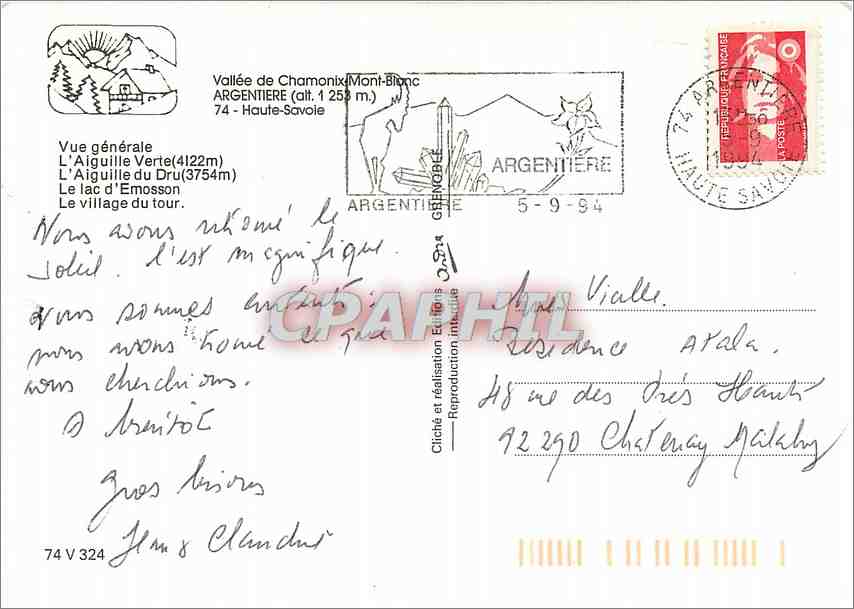 Vallée de Chamonix-Mont-Blanc
ARGENTIERE (alt. 1 253 m.)
74 - Haute-Savoie
Vue générale
L'Aiguille Verte(4122m)
L'Aiguille du Dru(3754m)
Le lac d'Emosson
Le village du tour.
ARGENTIERE
ARGENTIERE 5-9-94
74 ARGENTIERE
5-9
1994
HAUTE SAVOIE
REPUBLIQUE FRANÇAISE
LA POSTE
Nous avons retrouvé le
soleil. C'est magnifique.
Nous sommes enchantés :
nous avons trouvé ce que
nous cherchions.
A bientôt
Gros bisous
Jean & Claudine
Cliché et réalisation Editions André GRENOBLE
Reproduction interdite
CPAPHIL
Vialle.
Résidence Atala.
48 rue des Prés Hauts
92290 Chatenay Malabry
74 V 324